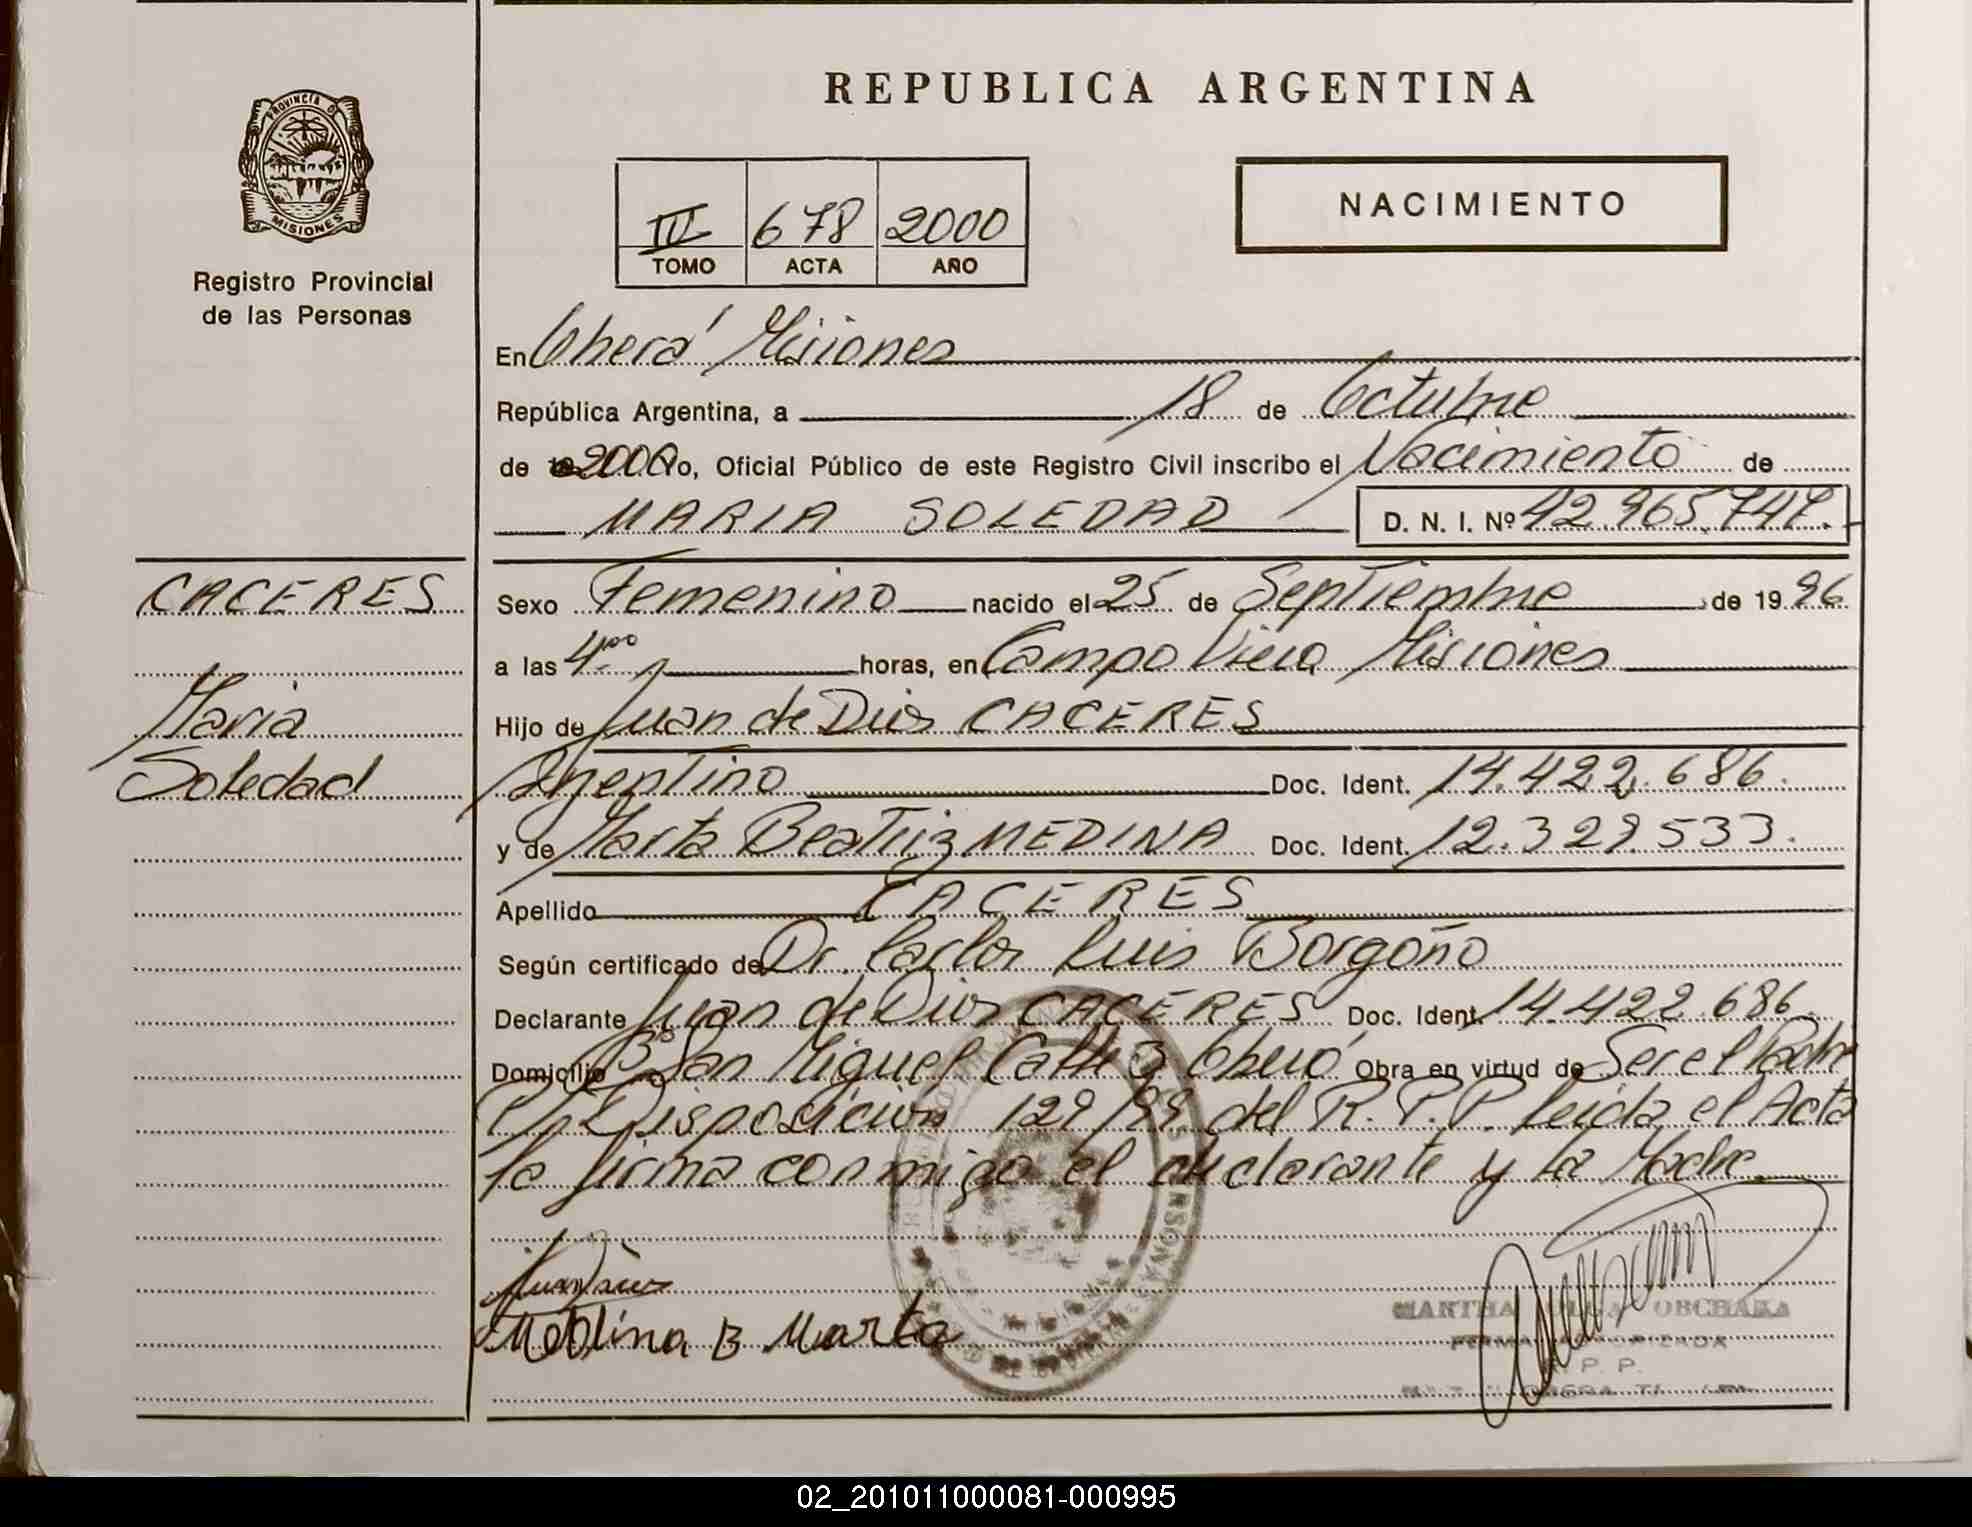 REPUBLICA ARGENTINA
PROVINCIA D MISIONES
Registro Provincial
de las Personas
III 678 2000
TOMO ACTA AÑO
NACIMIENTO
En Oberá Misiones
República Argentina, a 18 de Octubre
de 2000 Yo, Oficial Público de este Registro Civil inscribo el Nacimiento de
MARIA SOLEDAD D. N. I. Nº 42.965.747.
CACERES
María
Soledad
Sexo Femenino nacido el 25 de Septiembre de 1996
a las 4.00 horas, en Campo Viera Misiones
Hijo de Juan de Dios CACERES
Argentino Doc. Ident. 14.422.686.
y de Marta Beatriz MEDINA Doc. Ident. 12.329.533.
Apellido CACERES
Según certificado de Dr. Carlos Luis Borgoño
Declarante Juan de Dios CACERES Doc. Ident. 14.422.686.
Domicilio Bº San Miguel Calle 3 Oberá Obra en virtud de Ser el Padre
Disposición 129/99 del R.P.P. leida el Acta
la firma conmigo el declarante y la Madre
Medina B Marta
MARTHA OLGA OBCHAKA
P. P.
02_201011000081-000995